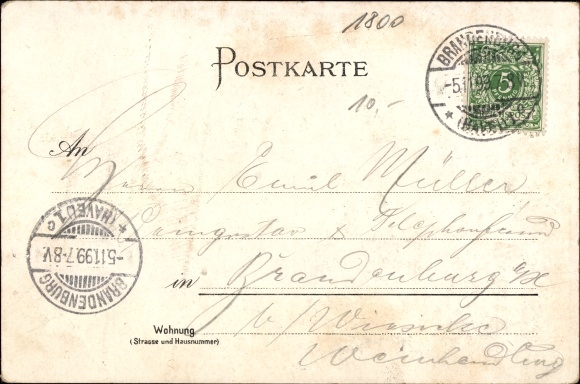 1800
POSTKARTE
10,-
BRANDENBURG
-5.11.99
(HAVEL)
5
An
Herrn Emil Müller
Telephonist
in Brandenburg a/H
b/
Wohnung
(Strasse und Hausnummer)
Weinhandlung
BRANDENBURG
-5.11.99.7-8V.
(HAVEL) 1 c